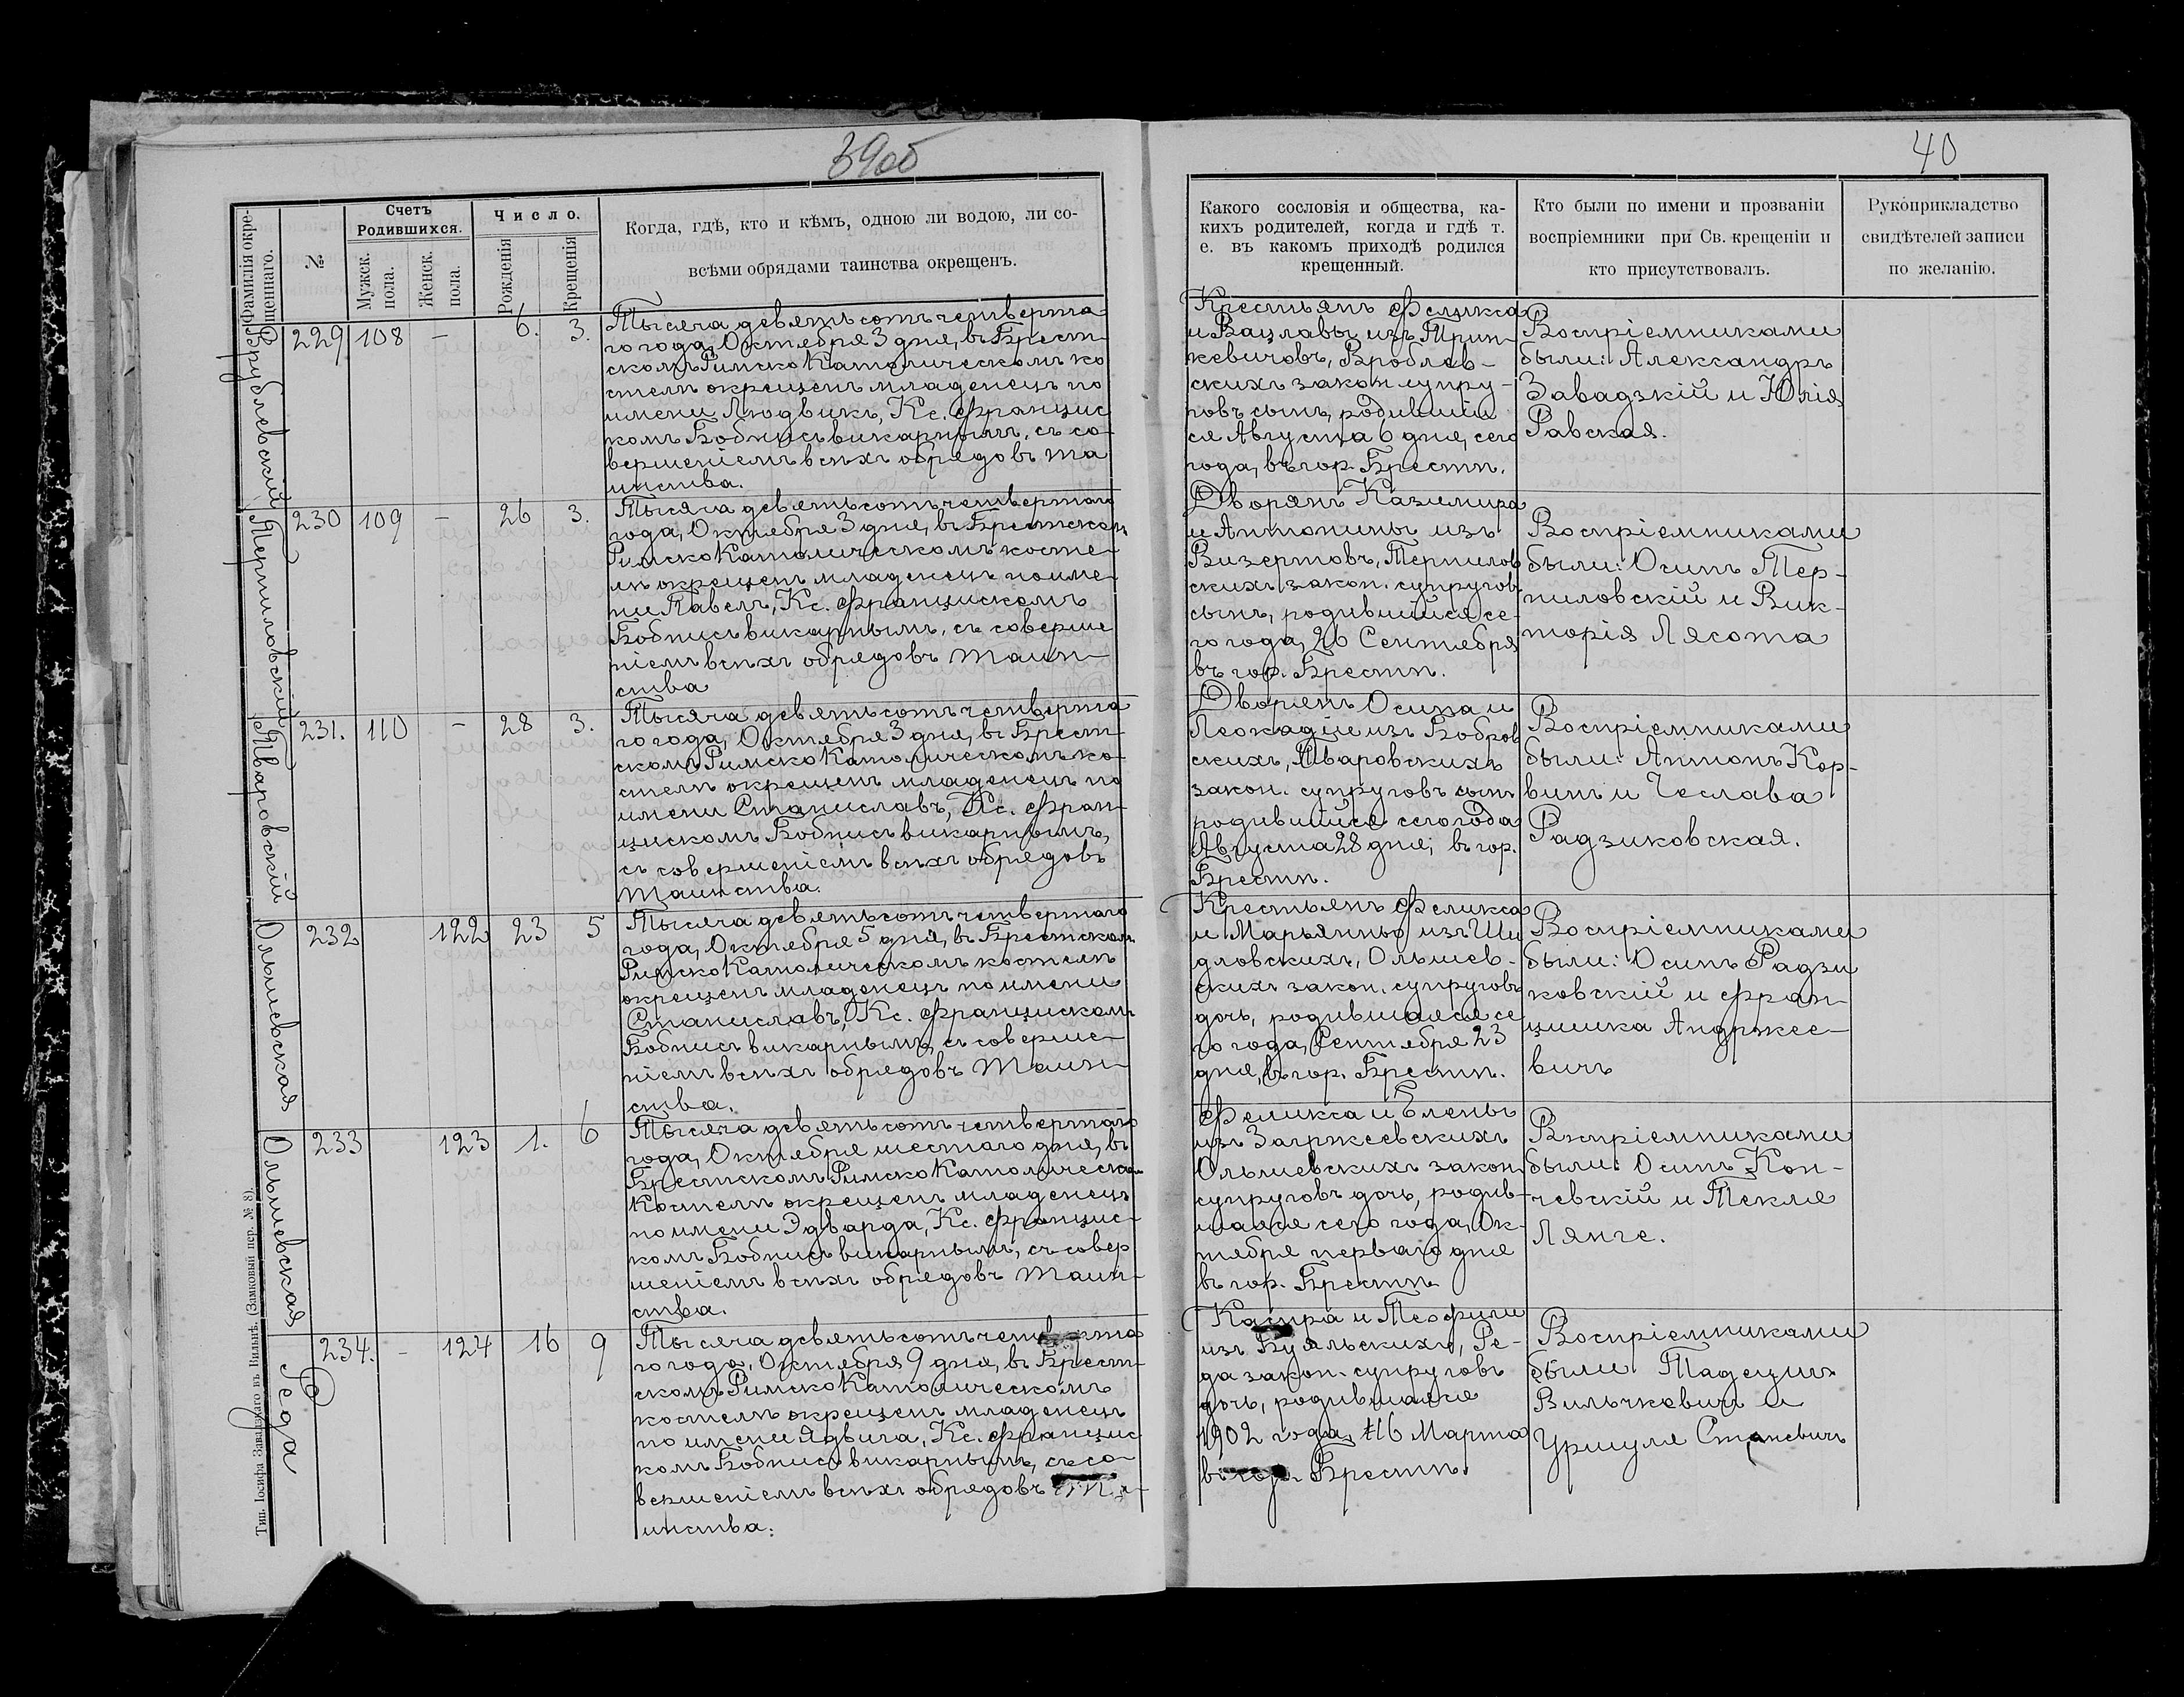 39об
40
Фамилія окрещеннаго.
№
Счетъ
Родившихся.
Мужск. пола.
Женск. пола.
Число.
Рожденія
Крещенія
Когда, гдѣ, кто и кѣмъ, одною ли водою, ли со-
всѣми обрядами таинства окрещенъ.
Какого сословія и общества, ка-
кихъ родителей, когда и гдѣ т.
е. въ какомъ приходѣ родился
крещенный.
Кто были по имени и прозванію
воспріемники при Св. крещеніи и
кто присутствовалъ.
Рукоприкладство
свидѣтелей записи
по желанію.
Врублевскій
229 108 - 6. 3.
Тысяча девятьсотъ четверта
го года, Октября 3 дня, въ Брест-
скомъ Римско Католическомъ ко
стелѣ окрещенъ младенецъ по
имени Людвикъ, Кс. Францис
комъ Бобнисъ викарнымъ, съ со-
вершеніемъ всѣхъ обрядовъ та
инства.
Крестьянъ Феликса
и Вацлавы изъ Трин-
кевичовъ, Вроблев-
скихъ закон. супру-
говъ сынъ, родившій
ся Августа 6 дня, сего
года, въ гор. Брестѣ.
Воспріемниками
были: Александръ
Завадзкій и Юлія
Равская.
Терпиловскій
230 109 - 26 3.
Тысяча девятьсотъ четвертаго
года, Октября 3 дня, въ Брестском
Римско Католическомъ косте-
лѣ окрещенъ младенецъ по име-
ни Павелъ, Кс. Францискомъ
Бобнисъ викарнымъ, съ соверше
ніемъ всѣхъ обрядовъ таин-
ства
Дворянъ Казимира
и Антонины изъ
Визертовъ, Терпилов
скихъ закон. супруговъ
сынъ, родившійся се-
го года, 26 Сентября
въ гор. Брестѣ.
Воспріемниками
были: Осипъ Тер-
пиловскій и Вик-
торія Лясота
Яваровскій
231. 110 - 28 3.
Тысяча девятьсотъ четверта
го года, Октября 3 дня, въ Брест-
скомъ Римско Католическомъ ко-
стелѣ окрещенъ младенецъ по
имени Станиславъ, Кс. Фран-
цискомъ Бобнисъ викарнымъ,
съ совершеніемъ всѣхъ обрядовъ
таинства.
Дворянъ Осипа и
Леокадіи изъ Бобров
скихъ, Яваровскихъ
закон. супруговъ сынъ
родившійся сего года
Августа 28 дня, въ гор.
Брестѣ.
Воспріемниками
были: Антонъ Кор-
винъ и Чеслава
Радзиковская.
Ольшевская
232 122 23 5
Тысяча девятьсотъ четвертаго
года, Октября 5 дня, въ Брестском
Римско Католическомъ костелѣ
окрещенъ младенецъ по имени
Станиславъ, Кс. Францискомъ
Бобнисъ викарнымъ, съ соверше-
ніемъ всѣхъ обрядовъ таин-
ства.
Крестьянъ Феликса
и Марьянны изъ Ши
дловскихъ, Ольшев-
скихъ закон. супруговъ
дочь, родившаяся се
го года, Сентября 23
дня, въ гор. Брестѣ.
Воспріемниками
были: Осипъ Радзи
ковскій и Фран-
цишка Андржее-
вичъ
Ольшевская
233 123 1. 6
Тысяча девятьсотъ четвертаго
года, Октября шестого дня, въ
Брестскомъ Римско Католическом
Костелѣ окрещенъ младенецъ
по имени Эдварда, Кс. Францис-
комъ Бобнисъ викарнымъ, съ совер
шеніемъ всѣхъ обрядовъ таин-
ства.
Феликса и Елены
изъ Загржеевскихъ
Ольшевскихъ закон.
супруговъ дочь, родив-
шаяся сего года, Ок-
тября перваго дня
въ гор. Брестѣ
Вспріемниками
были: Осипъ Кон-
чевскій и Текля
Лянге.
Реда
234. - 124 16 9
Тысяча девятьсотъ четверта
го года, Октября 9 дня, въ Брест-
скомъ Римско Католическомъ
костелѣ окрещенъ младенецъ
по имени Ядвига, Кс. Францис
комъ Бобнисъ викарнымъ, съ со-
вершеніемъ всѣхъ обрядовъ та-
инства.
Каспра и Теофили
изъ Буяльскихъ, Ре-
да закон. супруговъ
дочь, родившаяся
1902 года, 16 Марта
въ гор. Брестѣ.
Воспріемниками
были Тадеушъ
Вильчкевичъ и
Уршуля Станевичъ
Тип. Іосифа Завадзкаго въ Вильнѣ. (Замковый пер. № 8).